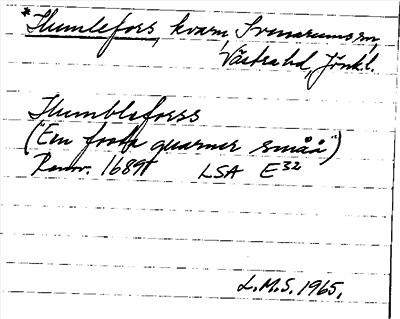 *Humlefors, kvarn, Svenarums sn,
Västra hd, Jönk.l.
Humblaforss
(Een foota quarner småå)
Renov. 1689 LSA E32
L.M.S. 1965.